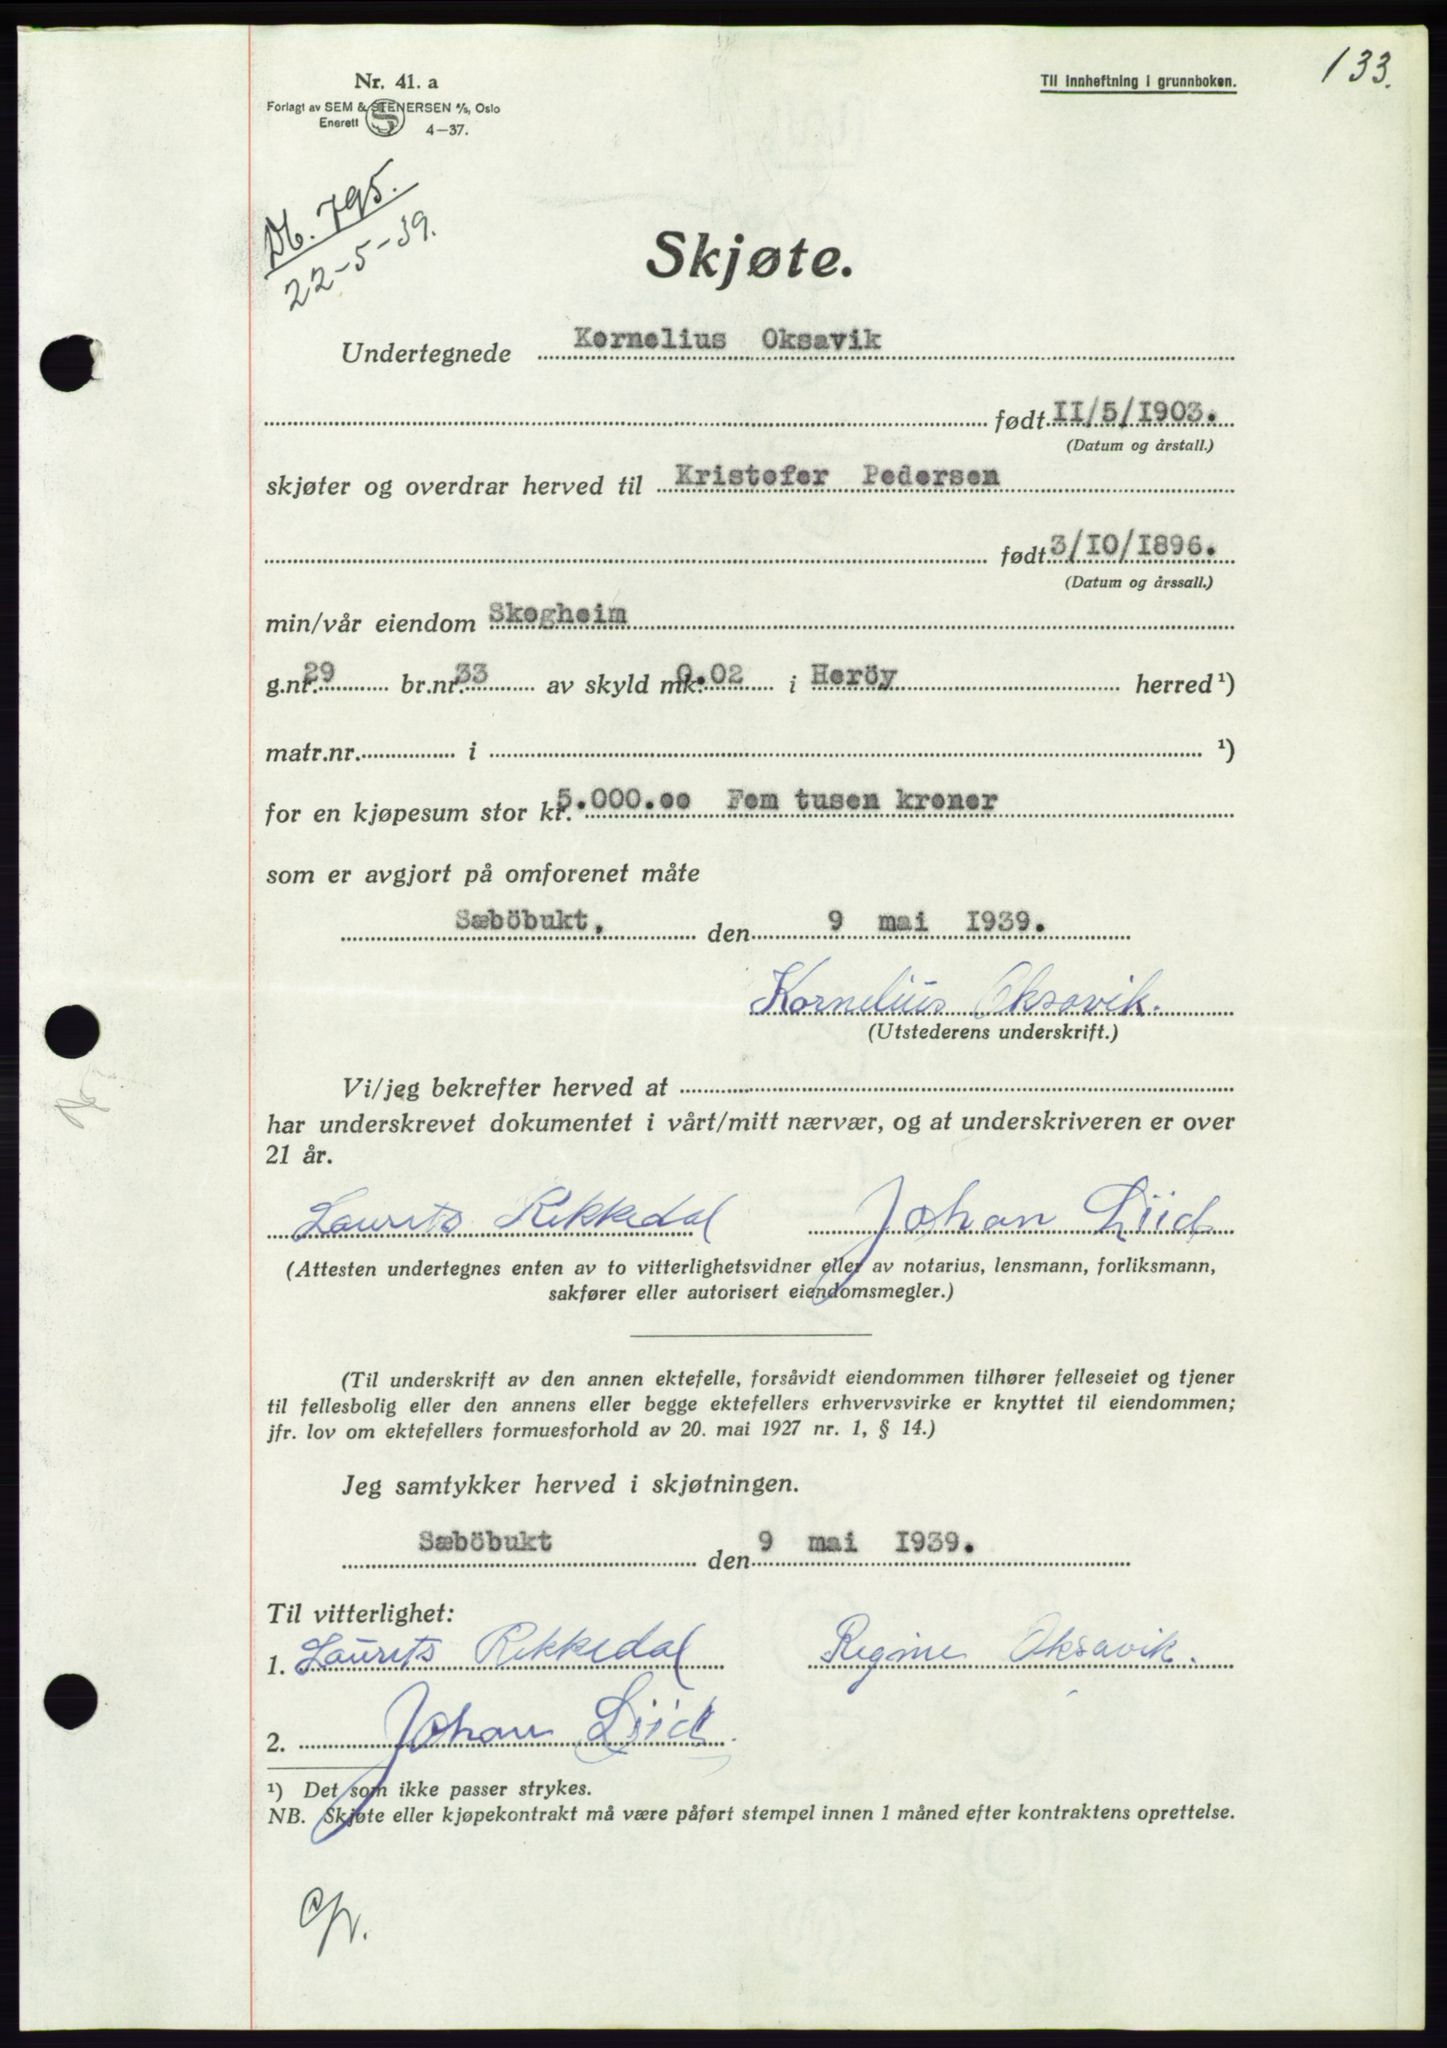 133.
Nr. 41. a
Til innheftning i grunnboken.
Forlagt av SEM & STENERSEN A/S, Oslo
Enerett
4-37.
Db. 795.
22-5-39.
Skjøte.
Undertegnede Kornelius Oksavik
født II/5/I903.
(Datum og årstall.)
skjøter og overdrar herved til Kristofer Pedersen
født 3/IO/I896.
(Datum og årssall.)
min/vår eiendom Skogheim
g.nr. 29 br.nr. 33 av skyld mk. 0.02 i Heröy herred ¹)
matr.nr. i ¹)
for en kjøpesum stor kr. 5.000.oo Fem tusen kroner
som er avgjort på omforenet måte
Sæböbukt. den 9 mai I939.
Kornelius Oksavik.
(Utstederens underskrift.)
Vi/jeg bekrefter herved at
har underskrevet dokumentet i vårt/mitt nærvær, og at underskriveren er over
21 år.
Laurits Rekkedal Johan Liid
(Attesten undertegnes enten av to vitterlighetsvidner eller av notarius, lensmann, forliksmann,
sakfører eller autorisert eiendomsmegler.)
(Til underskrift av den annen ektefelle, forsåvidt eiendommen tilhører felleseiet og tjener
til fellesbolig eller den annens eller begge ektefellers erhvervsvirke er knyttet til eiendommen;
jfr. lov om ektefellers formuesforhold av 20. mai 1927 nr. 1, § 14.)
Jeg samtykker herved i skjøtningen.
Sæböbukt den 9 mai I939.
Til vitterlighet:
1. Laurits Rekkedal Regine Oksavik.
2. Johan Liid.
¹) Det som ikke passer strykes.
NB. Skjøte eller kjøpekontrakt må være påført stempel innen 1 måned efter kontraktens oprettelse.